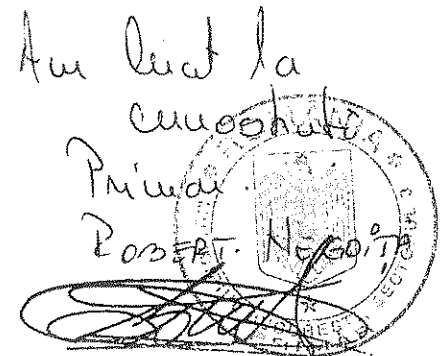 Am luat la
cunoștință
Primar.
ROBERT NEGOIȚĂ